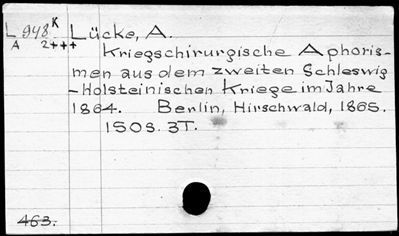 L 948 K Lücke, A.
A 2+++ Kriegschirurgische Aphoris-
men aus dem zweiten Schleswig
-Holsteinischen Kriege im Jahre
1864. Berlin, Hirschwald, 1865.
150 S. 3T.
463.